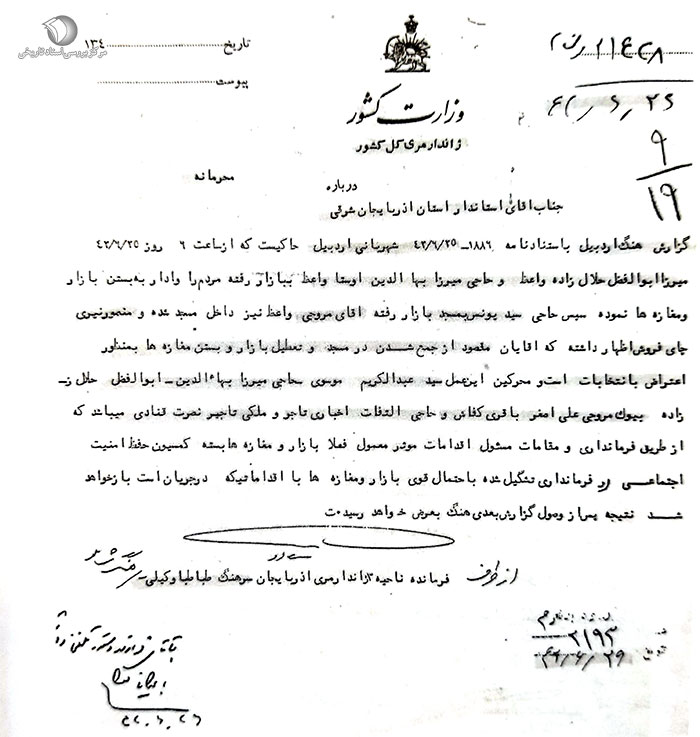 مرکز بررسی اسناد تاریخی
تاریخ ۱۳۴
پیوست
۲۱۴۲۸
۴۲/۶/۲۶
۹
۱۹
وزارت کشور
ژاندارمری کل کشور
محرمانه
درباره
جناب اقای استاندار استان اذربایجان شرقی
گزارش هنگ اردبیل باستنادنامه ۱۸۸۶-۴۲/۶/۲۵ شهربانی اردبیل حاکیست که ازساعت ۶ روز ۴۲/۶/۲۵
میرزا ابوالفضل حلال زاده واعظ و حاجی میرزا بها الدین اوستا واعظ ببازار رفته مردم را وادار به بستن بازار
ومغازه ها نموده سپس حاجی سید یونس بمسجد بازار رفته اقای مروجی واعظ نیز داخل مسجد شده و منصورنیری
چای فروش اظهارداشته که اقایان مقصود ازجمع شدن در مسجد و تعطیل بازار و بستن مغازه ها بمنظور
اعتراض بانتخابات است و محرکین این عمل سید عبدالکریم موسوی سحاجی میرزا بهاءالدین - ابوالفضل حلال ز-
زاده بیوک مروجی علی اصغر باقری کفاش و حاجی التفات اخباری تاجر و ملکی تاجر نصرت قنادی میباشد که
از طریق فرمانداری و مقامات مسئول اقدامات موثر معمول فعلا بازار و مغازه ها بسته کمسیون حفظ امنیت
اجتماعی در فرمانداری تشگیل شده باحتمال قوی بازار ومغازه ها با اقداماتیکه درجریان است بازخواهد
شد نتیجه پس از وصول گزارش بعدی هنگ بعرض خواهد رسید ت
از طرف فرمانده ناحیه ۳ ژاندارمری اذربایجان سرهنگ طباطبا وکیلی -
۲۱۹۳
۴۲/۶/۲۹
۴۲/۶/۲۶